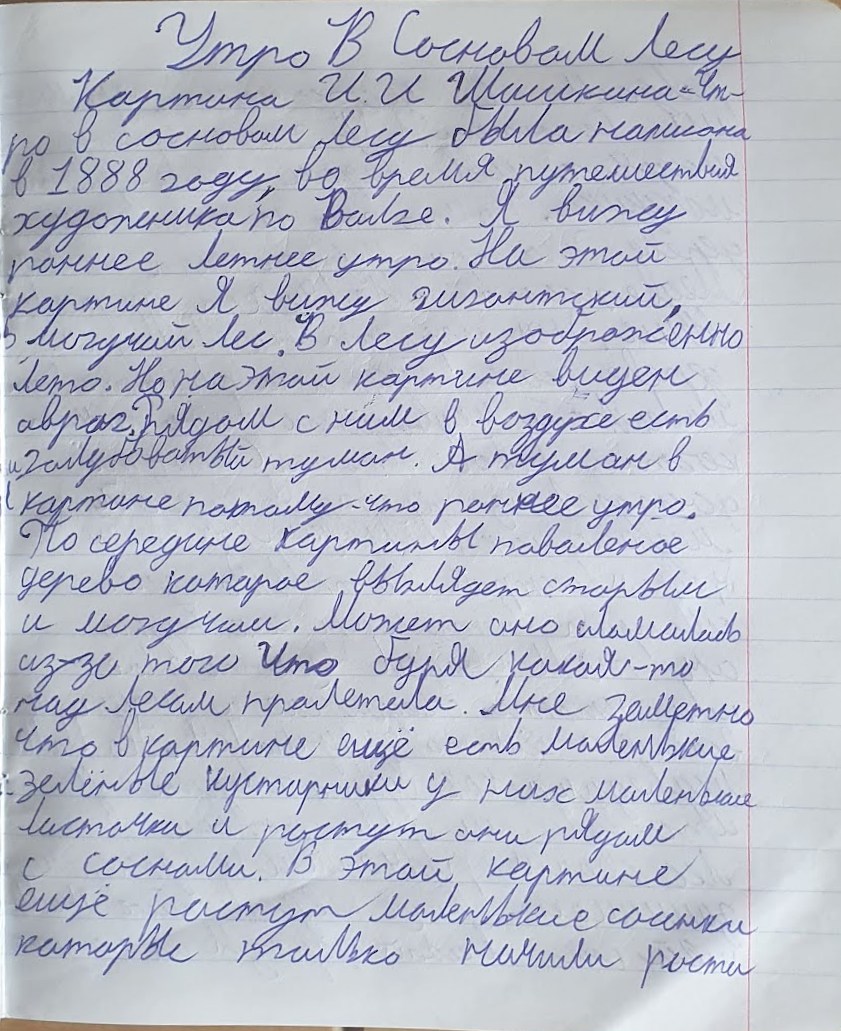 Утро В Сосновом Лесу
Картина И.И Шишкина-Ут-
ро в сосновом лесу была написана
в 1888 году, во время путешествия
художника по Волге. Я вижу
раннее летнее утро. На этой
картине Я вижу гигантский,
могучий лес. В лесу изображенно
лето. Но на этой картине виден
авраг. Рядом с ним в воздухе есть
голубоватый туман. А туман в
картине потому-что раннее утро.
По середине картины поваленое
дерево которое выглядет старым
и могучим. Может оно сломалось
из-за того что буря какая-то
над лесом пролетела. Мне заметно
что в картине ещё есть маленькие
зелёные кустарники у них маленькие
листочки и ростут они рядом
с соснами. В этой картине
ещё ростут маленькие сосенки
которые только начили рости